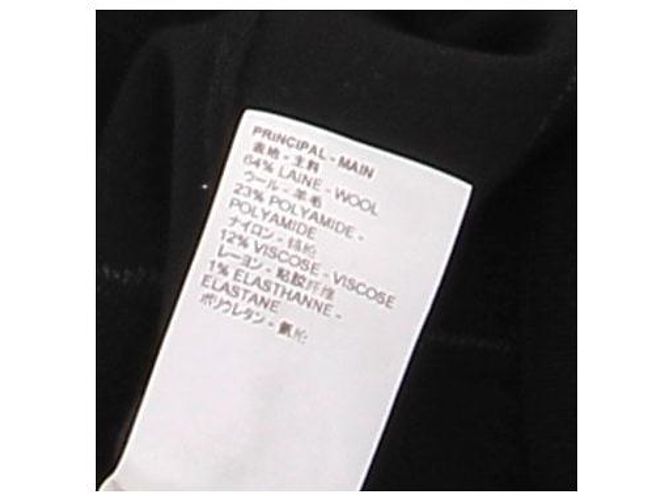 PRINCIPAL - MAIN
表地 - 主料
64% LAINE - WOOL
ウール - 羊毛
23% POLYAMIDE -
POLYAMIDE
ナイロン - 锦纶
12% VISCOSE - VISCOSE
レーヨン - 粘胶纤维
1% ELASTHANNE -
ELASTANE
ポリウレタン - 氨纶